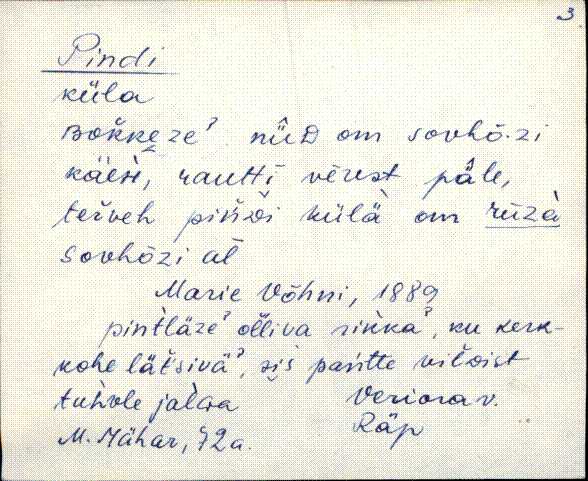 3
Pindi
küla
Bokkeze? nüD om sovhō.zi
käen, rautti vērest pǟle,
terveh pindi külä om rüzä
sovhōzi al
Marie Võhni, 1889
pintläze? olliva rikka?, ku kerk-
kohe lätsivä?, sis pantte vildist
tuhvle jalga Veriora v.
M. Mähar, 72 a. Räp